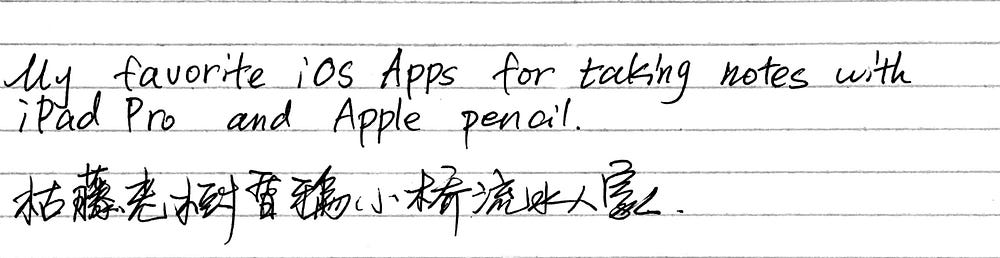 My favorite iOS Apps for taking notes with
iPad Pro and Apple pencil.
枯藤老树昏鸦小桥流水人家.